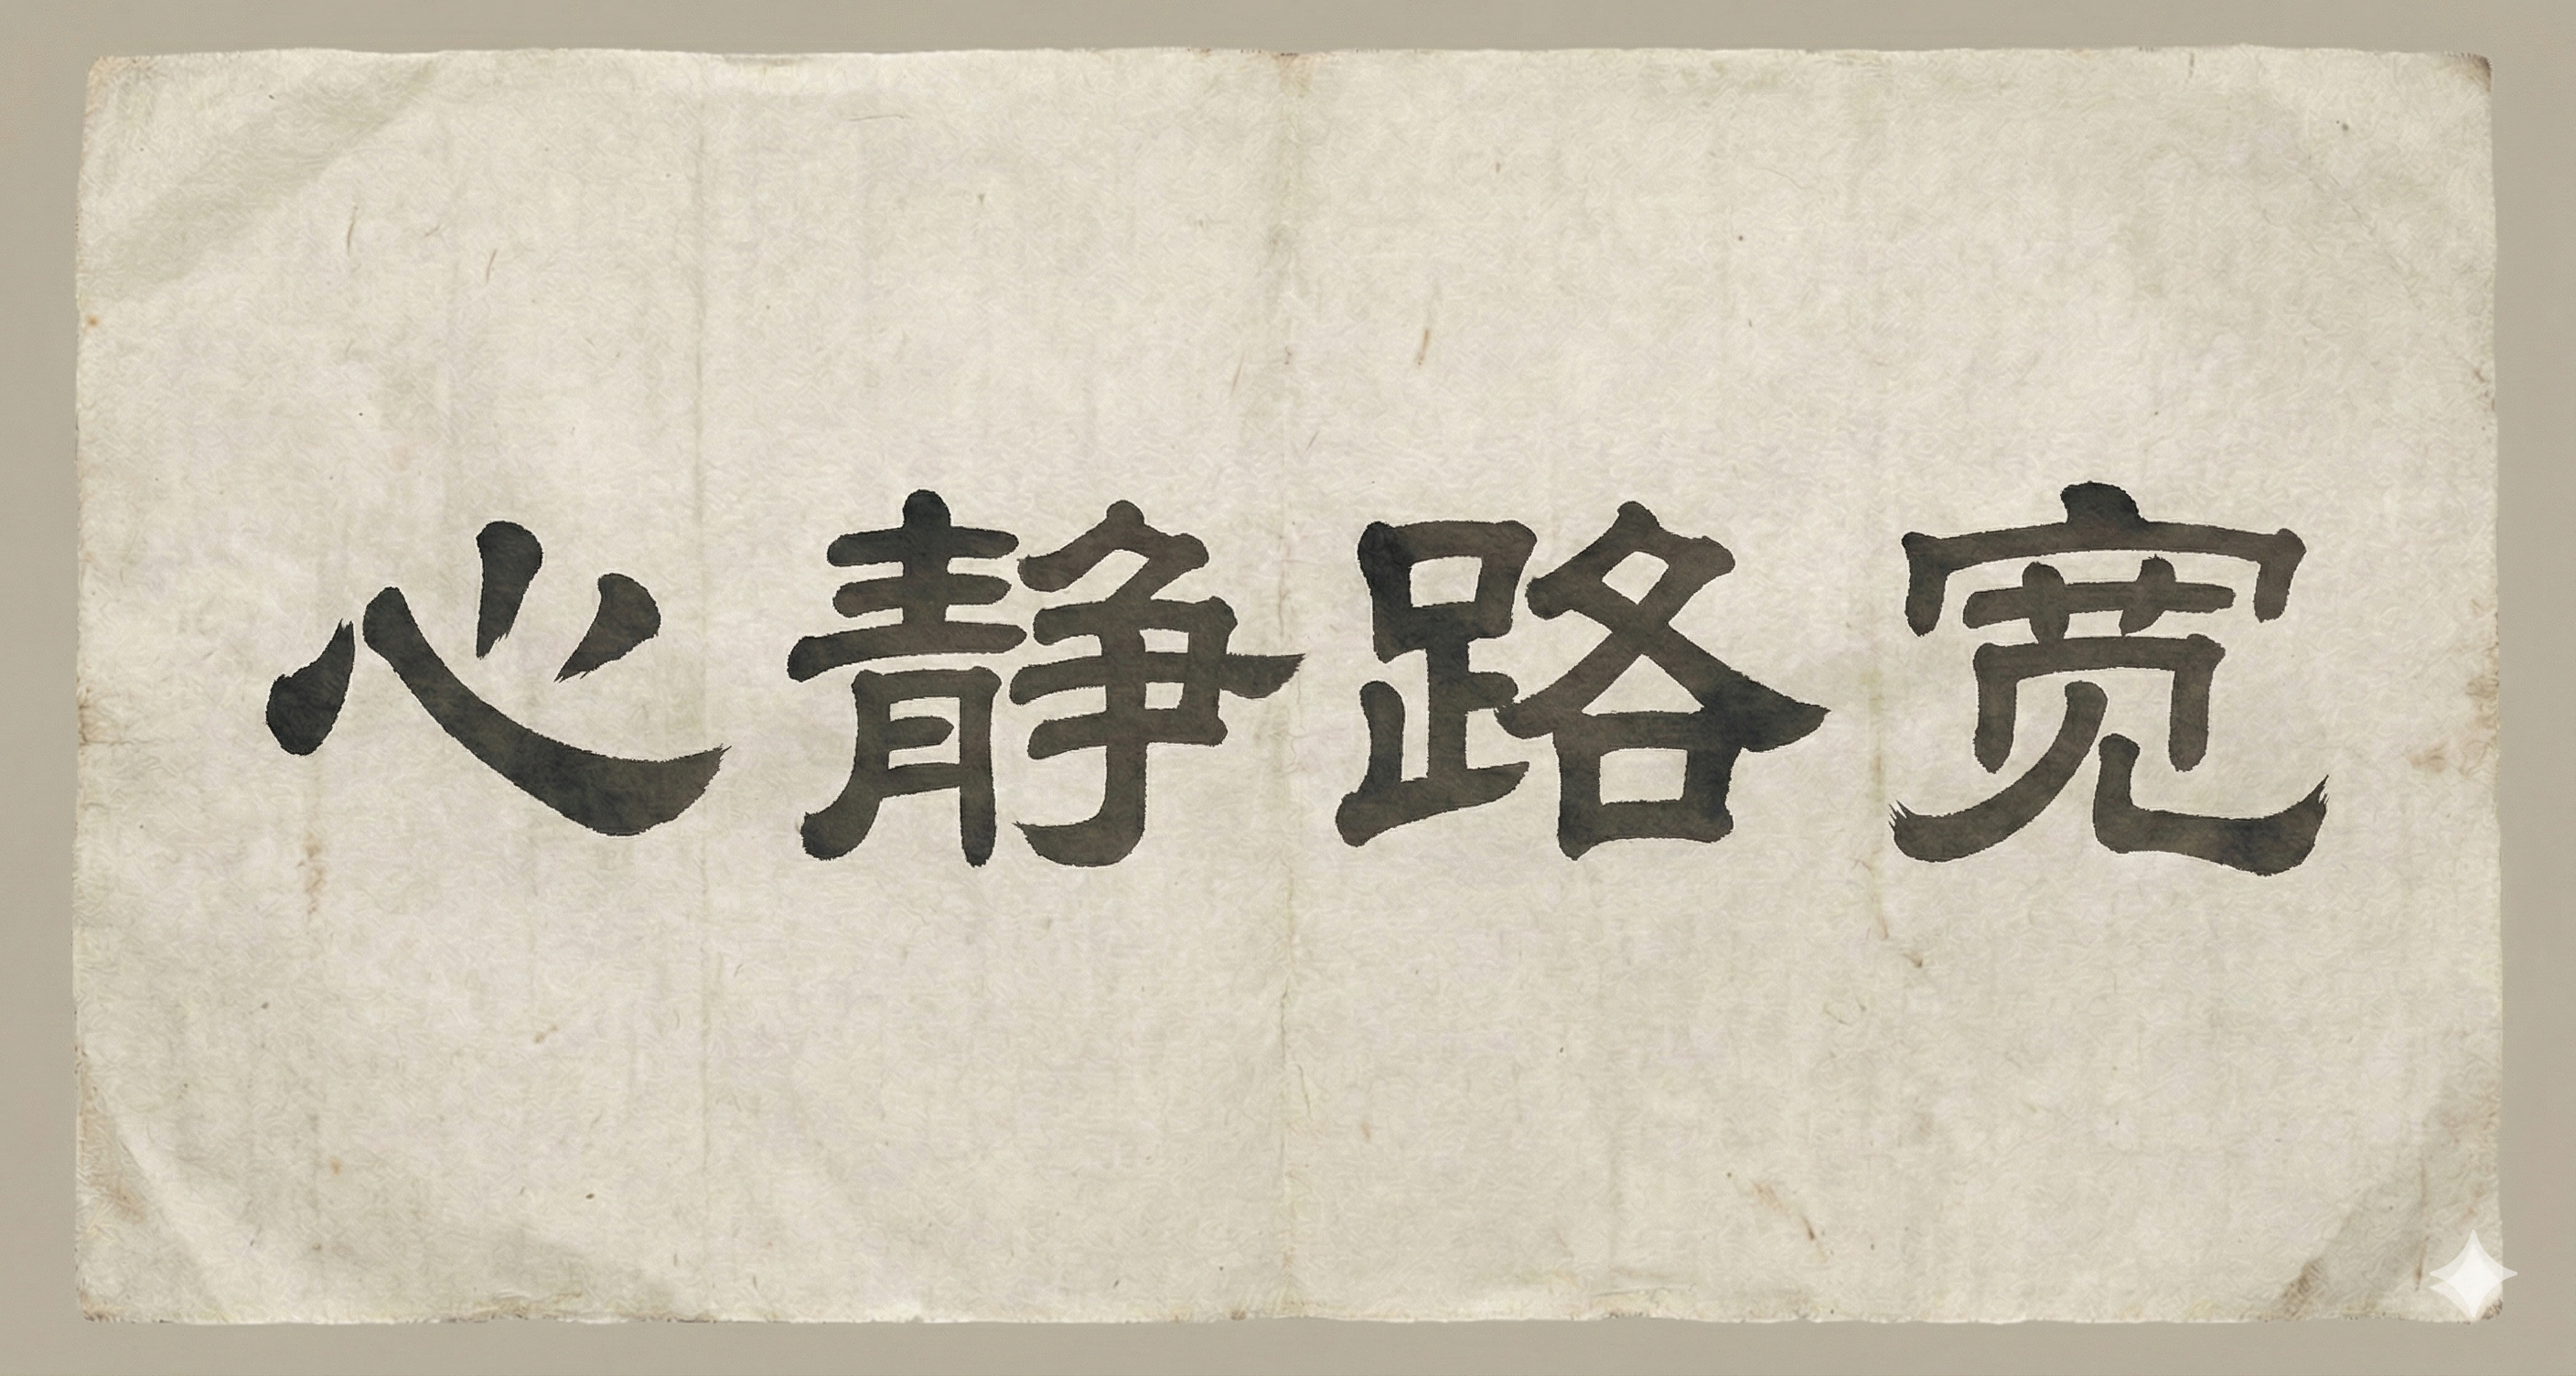 心静路宽